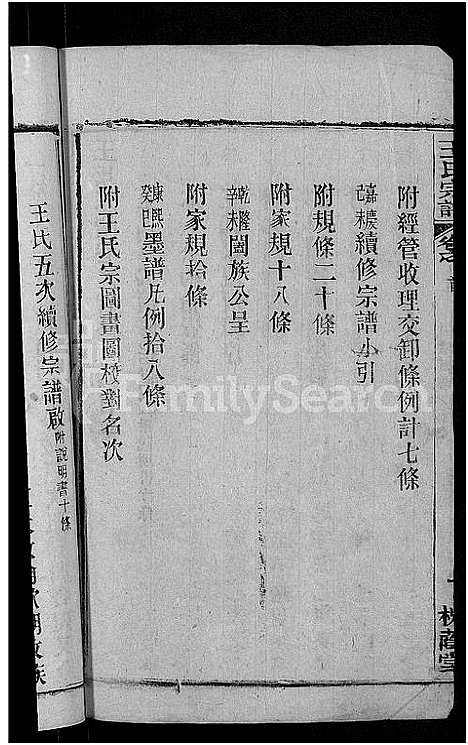 王氏宗譜
附經管收理交卸條例計七條
嘉慶辛未續修宗譜小引
附規條二十條
附家規十八條
乾隆辛未闔族公呈
附家規拾條
康熙癸巳墨譜凡例拾八條
附王氏宗圖書圖校對名次
王氏五次續修宗譜啟 附說明書十條
FamilySearch